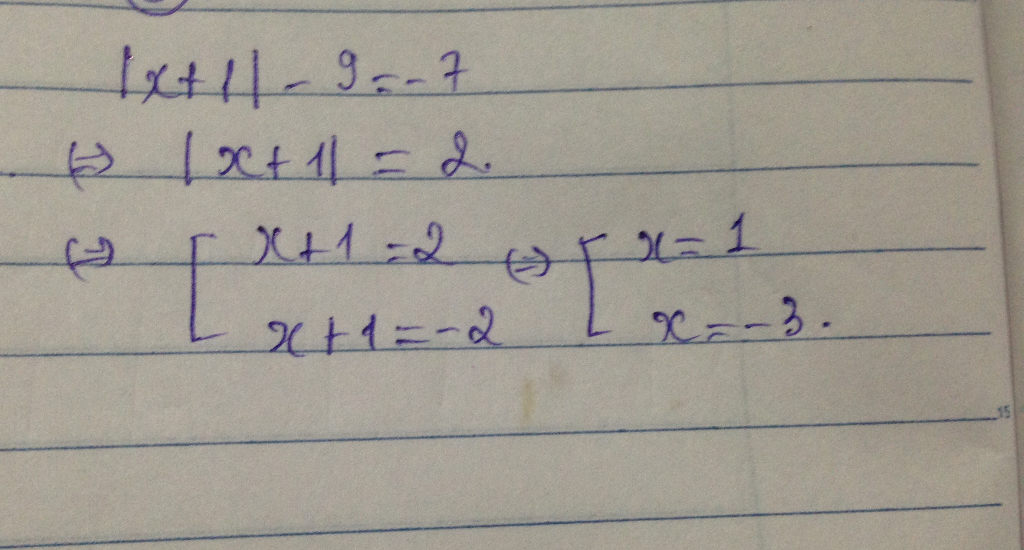 |x+1| - 9 = -7
⇔ |x+1| = 2.
⇔ [ x+1 = 2 ⇔ [ x = 1
x+1 = -2 x = -3.
15